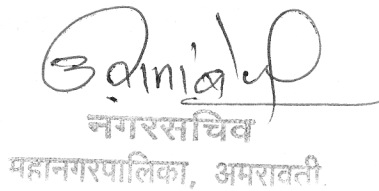 नगरसचिव
महानगरपालिका, अमरावती